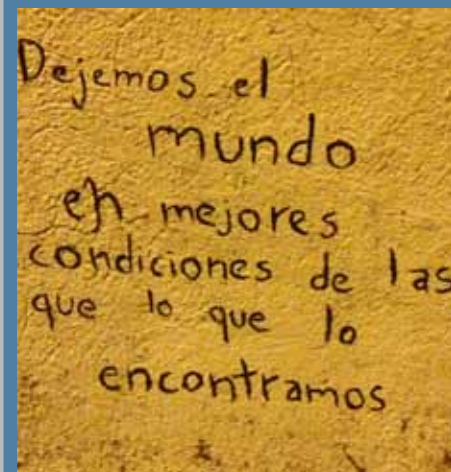 Dejemos el
mundo
en mejores
condiciones de las
que lo que lo
encontramos